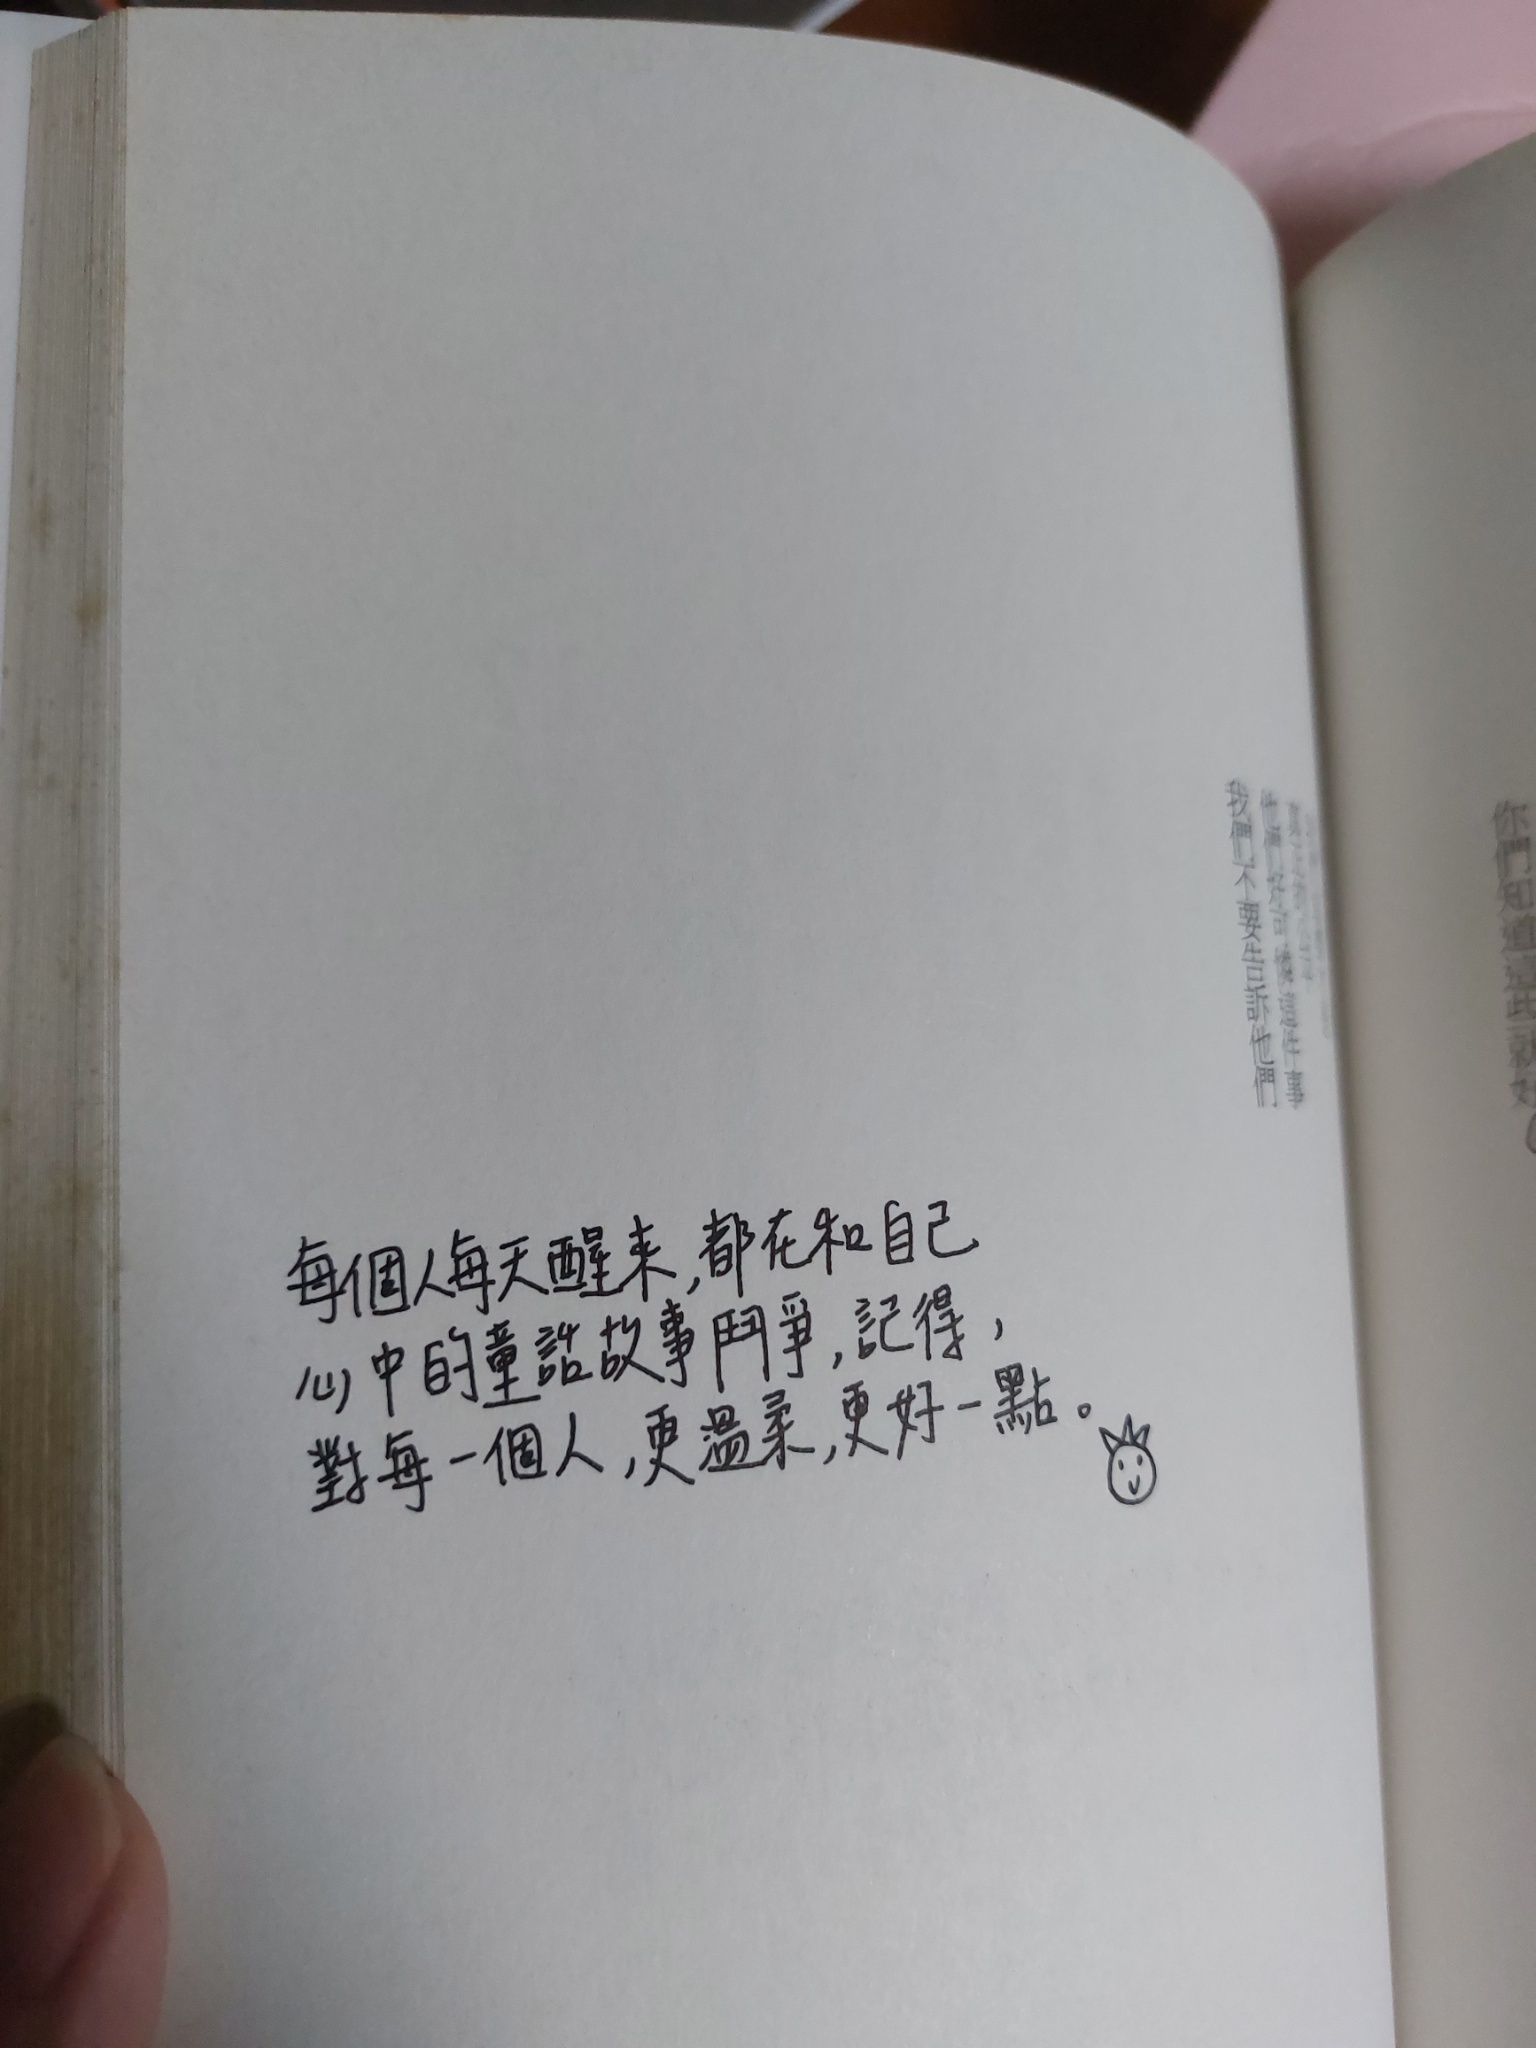 每個人每天醒来,都在和自己
心中的童話故事鬥爭,記得,
對每一個人,更溫柔,更好一點。
他們好可憐這件事
我們不要告訴他們
你們知道這些就好